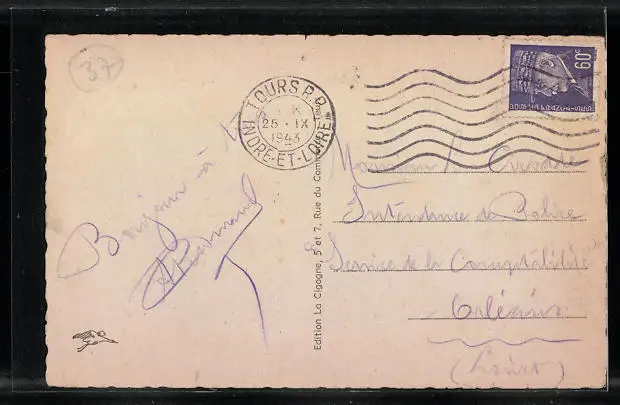 37
TOURS R.P.
25 - IX
1943
INDRE-ET-LOIRE
60c
Bonjour à t
Monsieur
Intendance de Police
Service de la Comptabilité
Orléans
(Loiret)
Edition La Cigogne, 5 et 7, Rue du